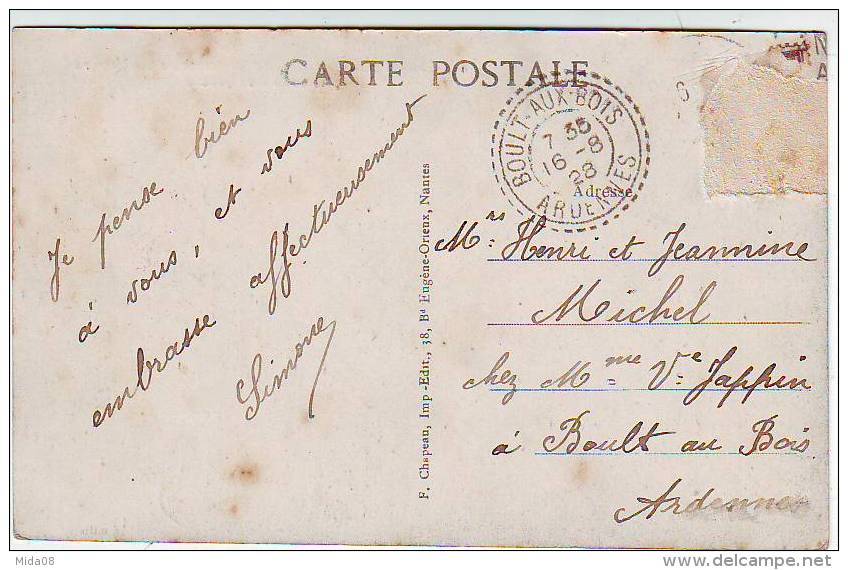 CARTE POSTALE
BOULT-AUX-BOIS
7 35
16 - 8
28
ARDENNES
Adresse
Je pense bien
à vous, et vous
embrasse affectueusement
Simone
F. Chapeau, Imp.-Edit., 38, Bd Eugène-Orieux, Nantes
Mrs. Henri et Jeannine
Michel
chez Mme Ve Jappin
à Boult au Bois
Ardennes
Mida08
delcampe.net